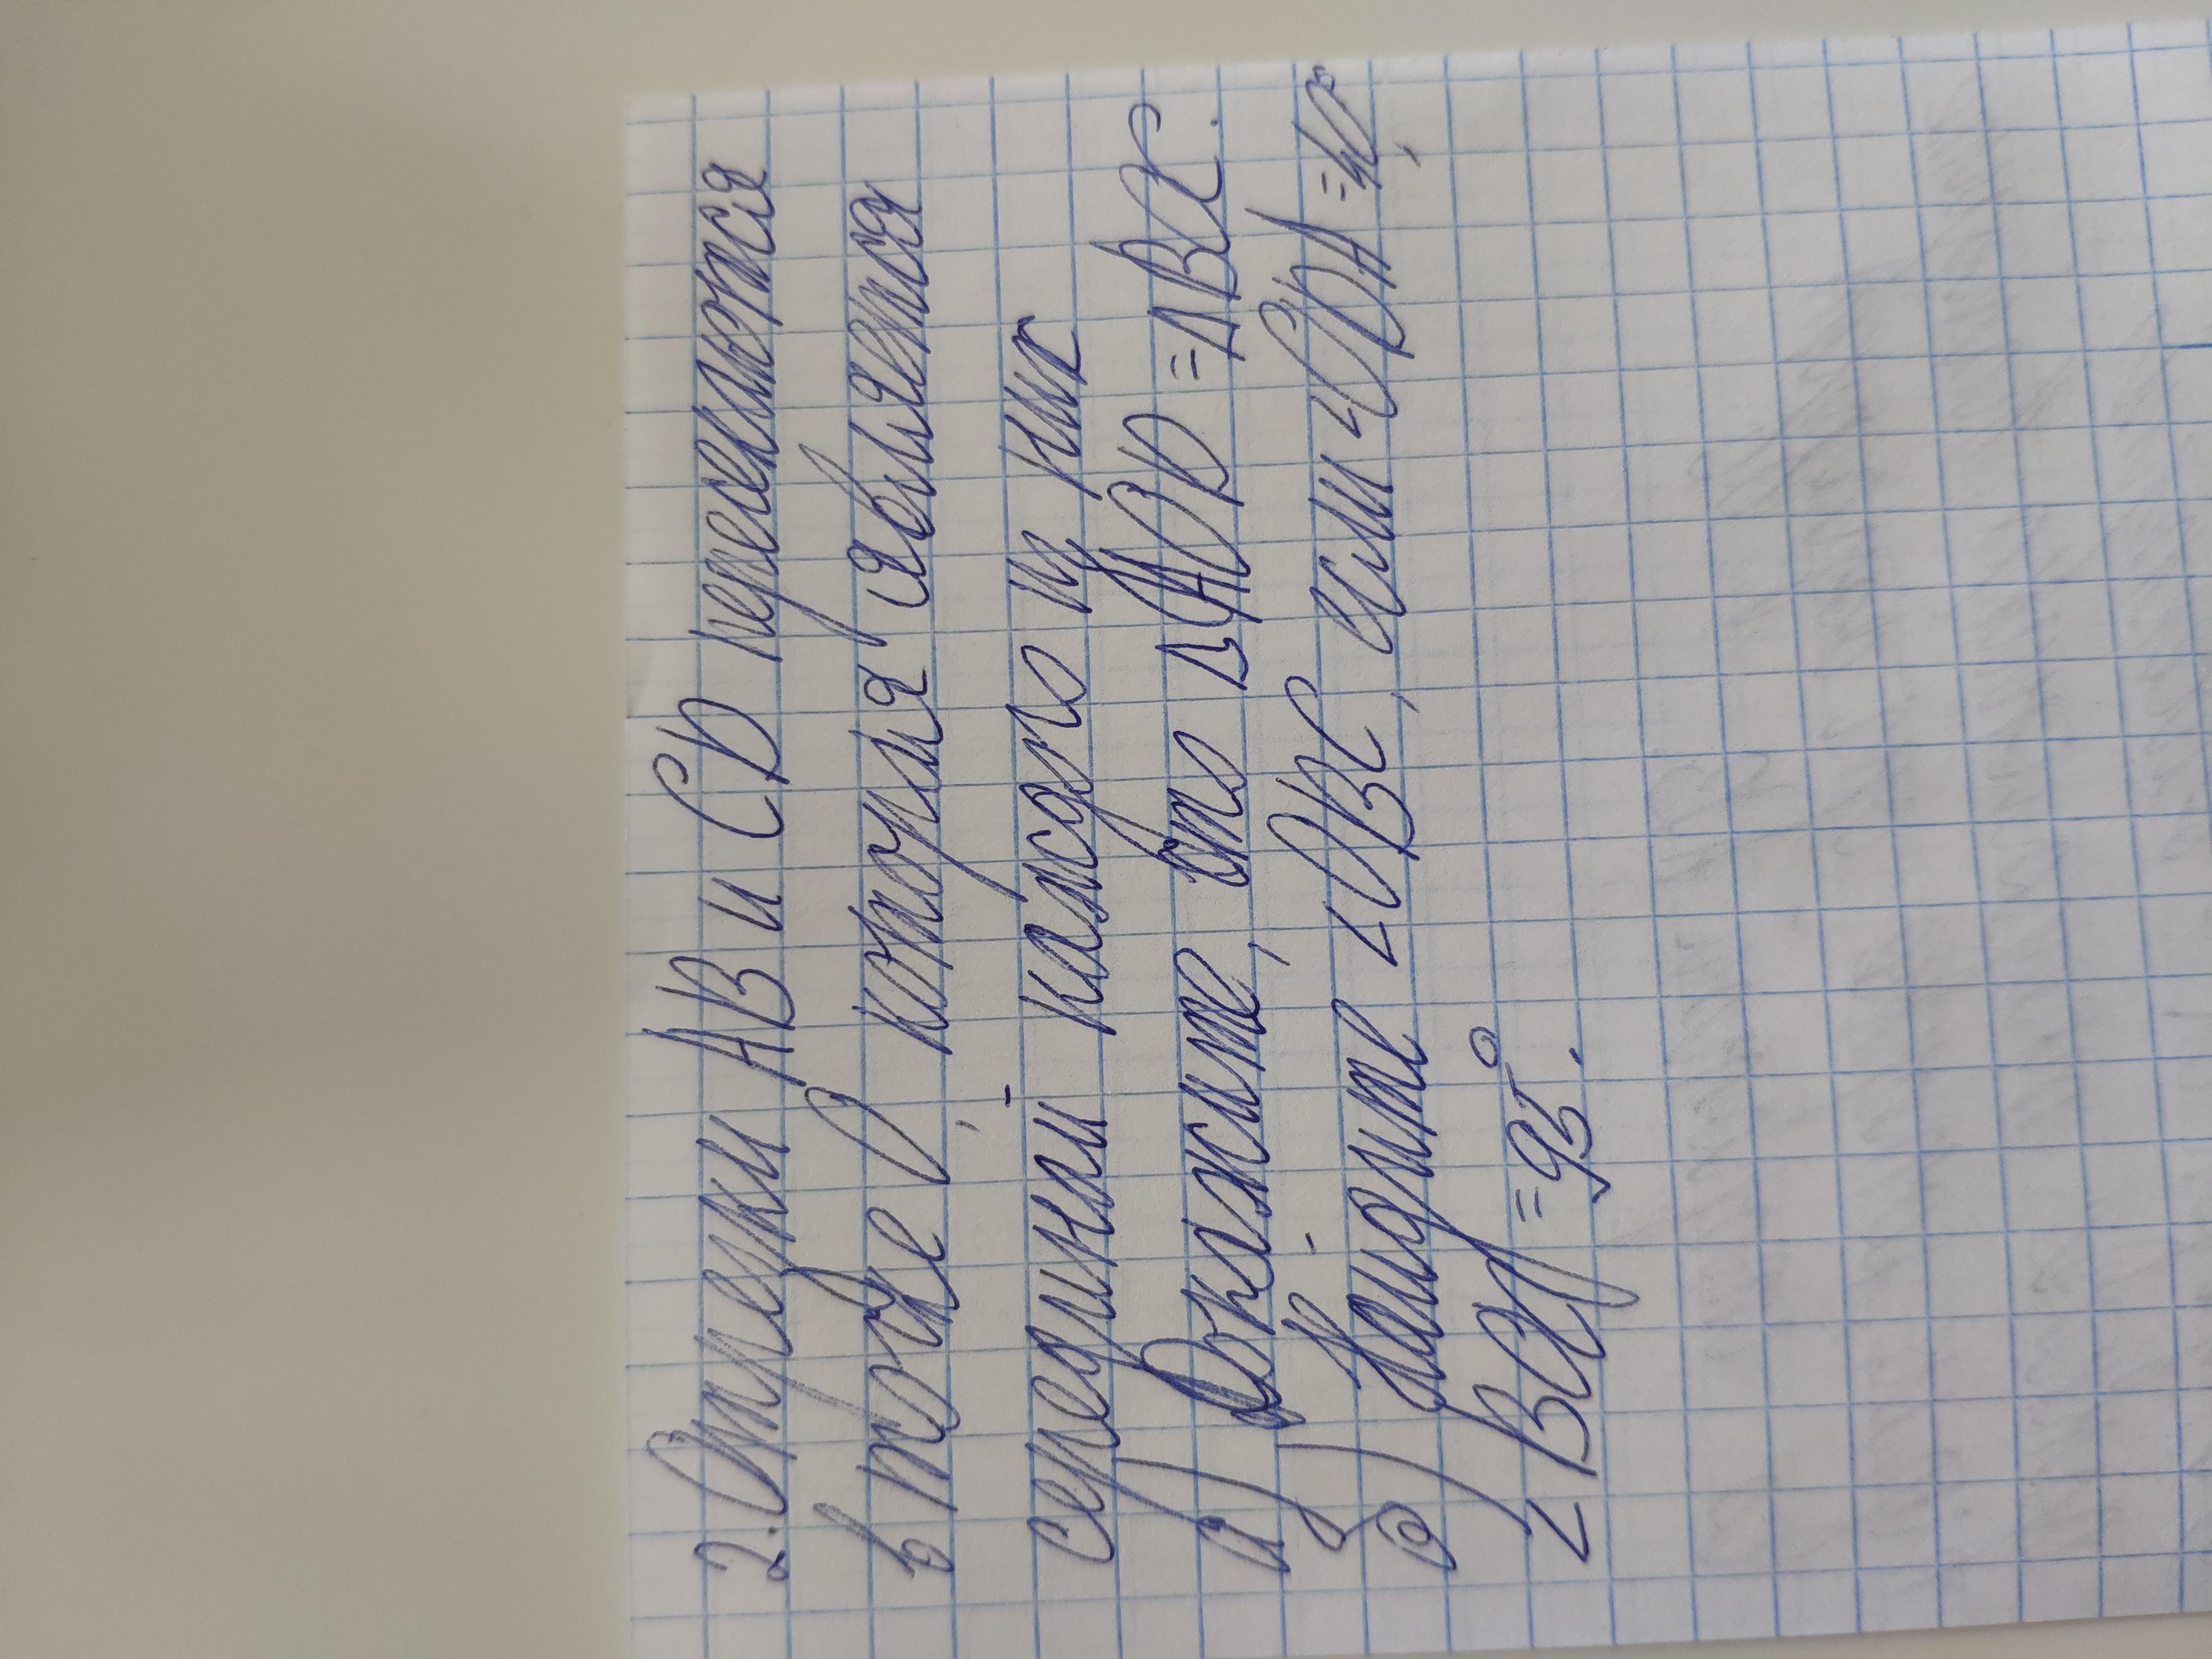 2. Отрезки AB и CD пересекаются
в точке O, которая является
серединой каждого из них
а) Докажите, что △AOD = △BOC.
б) Найдите ∠OBC, если ∠ODA = 40°,
∠BOD = 95°.